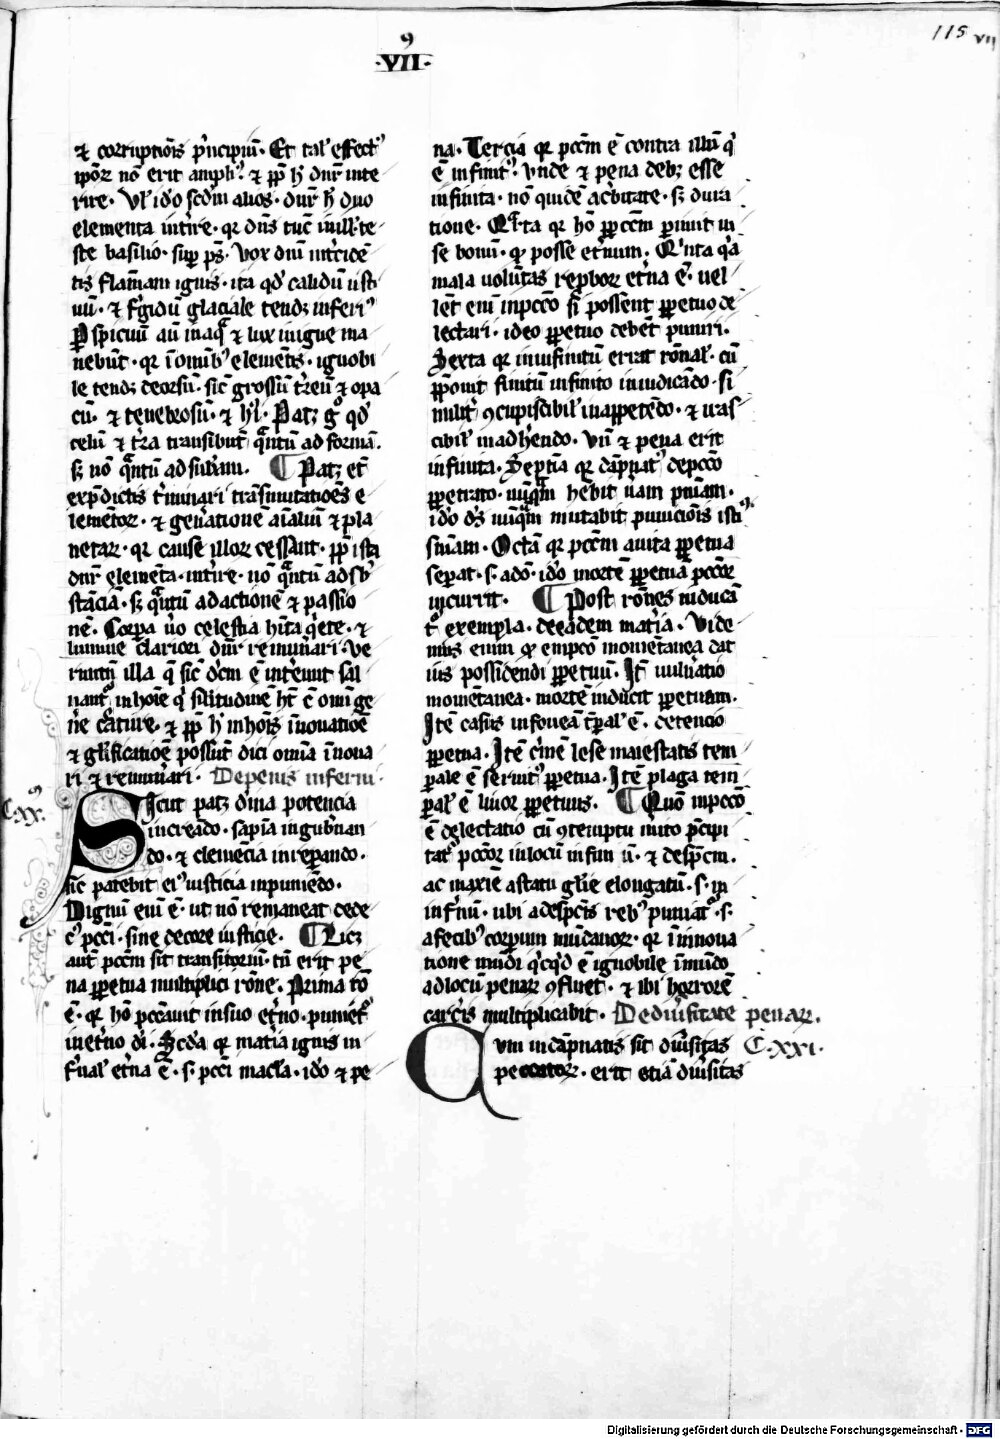 115 vii
·VII·
⁊ corruptiōis p'ncipiū· Et tal' effect'
ipōꝝ nō erit ampli'⁊ ꝓp h' dnr̄ inte
rire· Vl' ido scd'm alios· dnr̄ h' duo
elementa int'ire· qꝛ dn̄s tūc
ste basilio· sup ps̄· Vox dn̄i int'cidē
tis flam̄am ignis· ita qd' calidū usti
uū· ⁊ f'gidū glaciale tendꝫ inferi'
ꝑspicuū aū inaqua ⁊ lux inigne ma
nebūt· qꝛ ī omīb' elemētis· ignobi
le tendꝫ deorsū· sic̄ grossū t'reū ⁊ opa
cū· ⁊ tenebrosū· ⁊ h'· Patꝫ g° qd'
celū ⁊ t'ra transibūt q̄ntū ad formā·
sꝫ nō q̄ntū ad sub'am· ¶ Patꝫ et̄
exp̄dictis t'minari trāsmutatiōes e
lemētoꝝ· ⁊ gen'ationē aīaliū ⁊ pla
netaꝝ· qꝛ cause illoꝝ cessāut· ꝓp ista
dnr̄ elemēta· int'ire· nō q̄ntū ad sb'
stāciā· sꝫ q̄ntū ad actionē ⁊ passio
nē· Corpa u'o celestia hīta q'ete· ⁊
lumine clariori dnr̄ remun'ari· Ve
rūtn̄ illa q̄ sic̄ dc̄m ē int'eunt sal
uant' in hoīe q' silitudinē ht̄ cū omī ge
n'e c'ature· ⁊ ꝓp h' in hoīs īnouatiōē
⁊ gl'ificatiōē possūt dici omīa īnoua
ri ⁊ remun'ari· De penis inferni·
C·xx·
Sicut patꝫ diīna potencia
increādo· sapīa ingub'nan
do· ⁊ clemēcia inrepando·
sic̄ patebit ei' iusticia inpuniēdo·
Dignū enī ē· ut nō remaneat dede
c' pcc̄i· sine decore iusticie· ¶ Licꝫ
aut̄ pcc̄m sit transitoriū· tn̄ erit pe
na ꝑpetua multiplici rōne· Prima rō
ē· qꝛ hō pccauit insuo et'no· puniet'
inet'no dī· Scd'a qꝛ mat'ia ignis in
f'nal' et'na ē· s· pcc̄i mac'la· ido ⁊ pe
na· Tercia qꝛ pcc̄m ē contra illū q'
ē infinit'· Vnde ⁊ pena debꝫ esse
infinita· nō quidē ac'bitate· sꝫ dura
tione· Q̄rta qꝛ hō ꝑ pcc̄m ꝑimit in
se bonū· qd' posse et'num· Q'nta q'a
mala volūtas reproboꝝ et'na ē· uel
lēt enī inpcc̄o si possent ꝑpetuo de
lectari· ideo ꝑpetuo debēt puniri·
Sexta qꝛ in infinitū errat rōnal'· cū
p̄ponit finitū infinito in iudicādo· si
milit' ↄcupiscibil' inappetēdo· ⁊ iras
cibil' in adh'endo· Vn̄ ⁊ pena erit
infinita· Septīa qꝛ dāpnat' de pcc̄o
ꝑpetrato· nūq̄m hēbit u'am pnīam·
ido d's nūq̄m mutabit puniciōis isti'
snīam· Octā qꝛ pcc̄m a uita ꝑpetua
sepat· s· a dō· ido mortē ꝑpetuā pccōꝝ
incurrit· ¶ Post rōnes inducā
t' exempla· de eadem mat'ia· Vide
mus enim qd' empcō momētanea dat
ius possidendi ꝑpetuū· It̄ uuln'atio
momētanea· mortē inducit ꝑpetuam·
Itē casus in foueā t'pal' ē· detencio
ꝑpetua· Itē c'mē lese maiestatis tem
pale ē s'uit' ꝑpetua· Itē plaga tem
pal' ē liuor ꝑpetuus· ¶ Quō inpcc̄o
ē delectatio cū ↄtemptu
tat' pccōꝝ in locū
ac maxīe a statu gl'ie elongatū· s· in
inf'nū· ubi a desp̄cis reb' puniāt'· s·
a fecib' corpum mūdanoꝝ· qꝛ ī innoua
tione mūdi q'cq'd ē ignobile ī mūdo
ad locū penaꝝ ↄfluet· ⁊ ibi horrorē
carc'is multiplicabit· De diu'sitate penaꝝ·
Cum in dāpnatis sit diu'sitas C·xxi·
peccatoꝝ· erit etiā diu'sitas
Digitalisierung gefördert durch die Deutsche Forschungsgemeinschaft - DFG